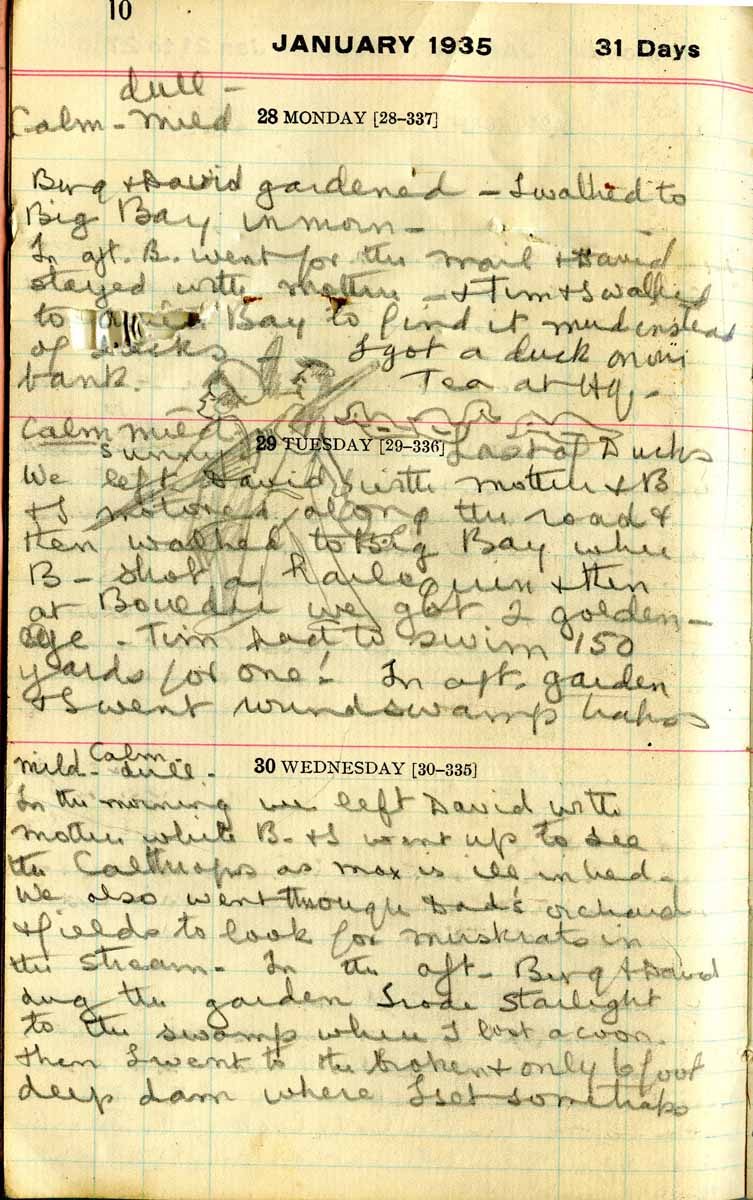 10
JANUARY 1935 31 Days
dull -
Calm - Mild 28 MONDAY [28–337]
Burg & David gardened - I walked to
Big Bay in morn -
In aft. B. went for the mail & David
stayed with mother - & Tim & I walked
to Bay to find it mud instead
of ducks I got a duck on
bank. Tea at Hq -
Calm mild
sunny 29 TUESDAY [29–336] Last of Ducks
We left David with mother & B
& I motored along the road &
then walked to Big Bay where
B - shot a harlequin & then
at Boulder we got 2 golden-
eye - Tim had to swim 150
yards for one! In aft. garden
& I went round swamp traps
Calm -
mild - dull - 30 WEDNESDAY [30–335]
In the morning we left David with
mother while B. & I went up to see
the Calthrops as Max is ill in bed -
We also went through Dad's orchard
& fields to look for muskrats in
the stream - In the aft - Burg & David
dug the garden I rode Starlight
to the swamp where I lost a coon.
then I went to the broken & only 6 foot
deep dam where I set some traps